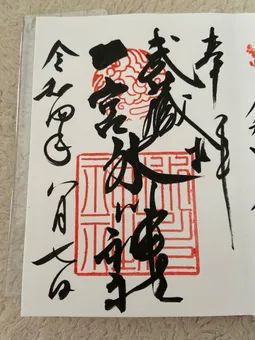 奉拝
武蔵
一宮
氷川神社
令和四年八月七日